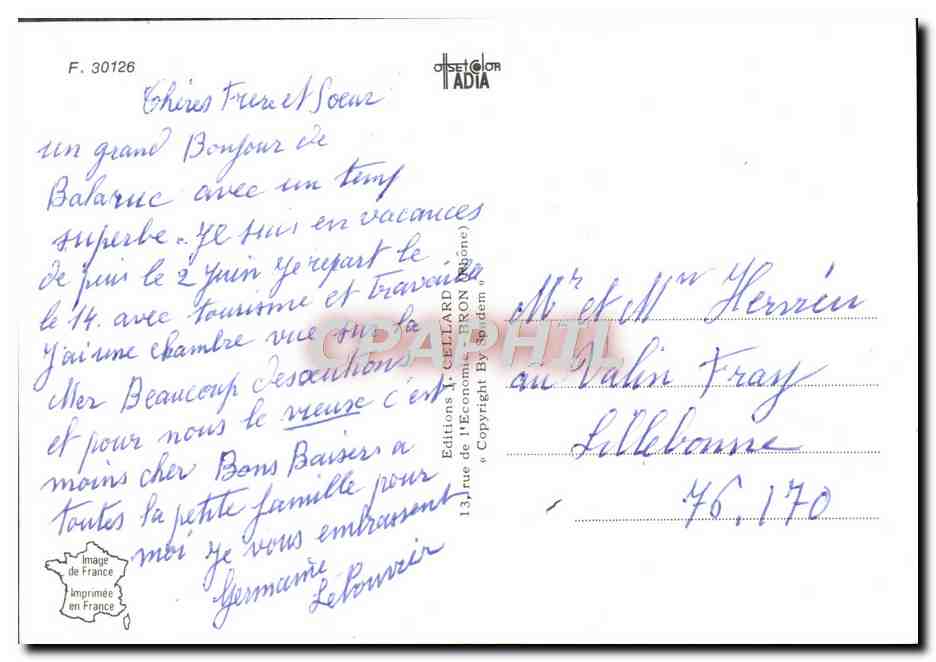 F. 30126
OFFSET COLOR
ADIA
Chères Frere et Soeur
un grand Bonjour de
Balaruc avec un temp
superbe. Je suis en vacances
de puis le 2 Juin Je repart le
le 14. avec tourisme et Travaille
J'ai une chambre vue sur la
Mer Beaucoup
et pour nous le vieux c'est
moins cher Bons Baisers a
toutes la petite famille pour
moi Je vous embrassent
Germaine
Editions J. CELLARD
13, rue de l'Economie - BRON (Rhône)
« Copyright By Spadem »
CPAPHIL
Mr et Mm
au Valin Fray
Lillebonne
76.170
Image
de France
Imprimée
en France